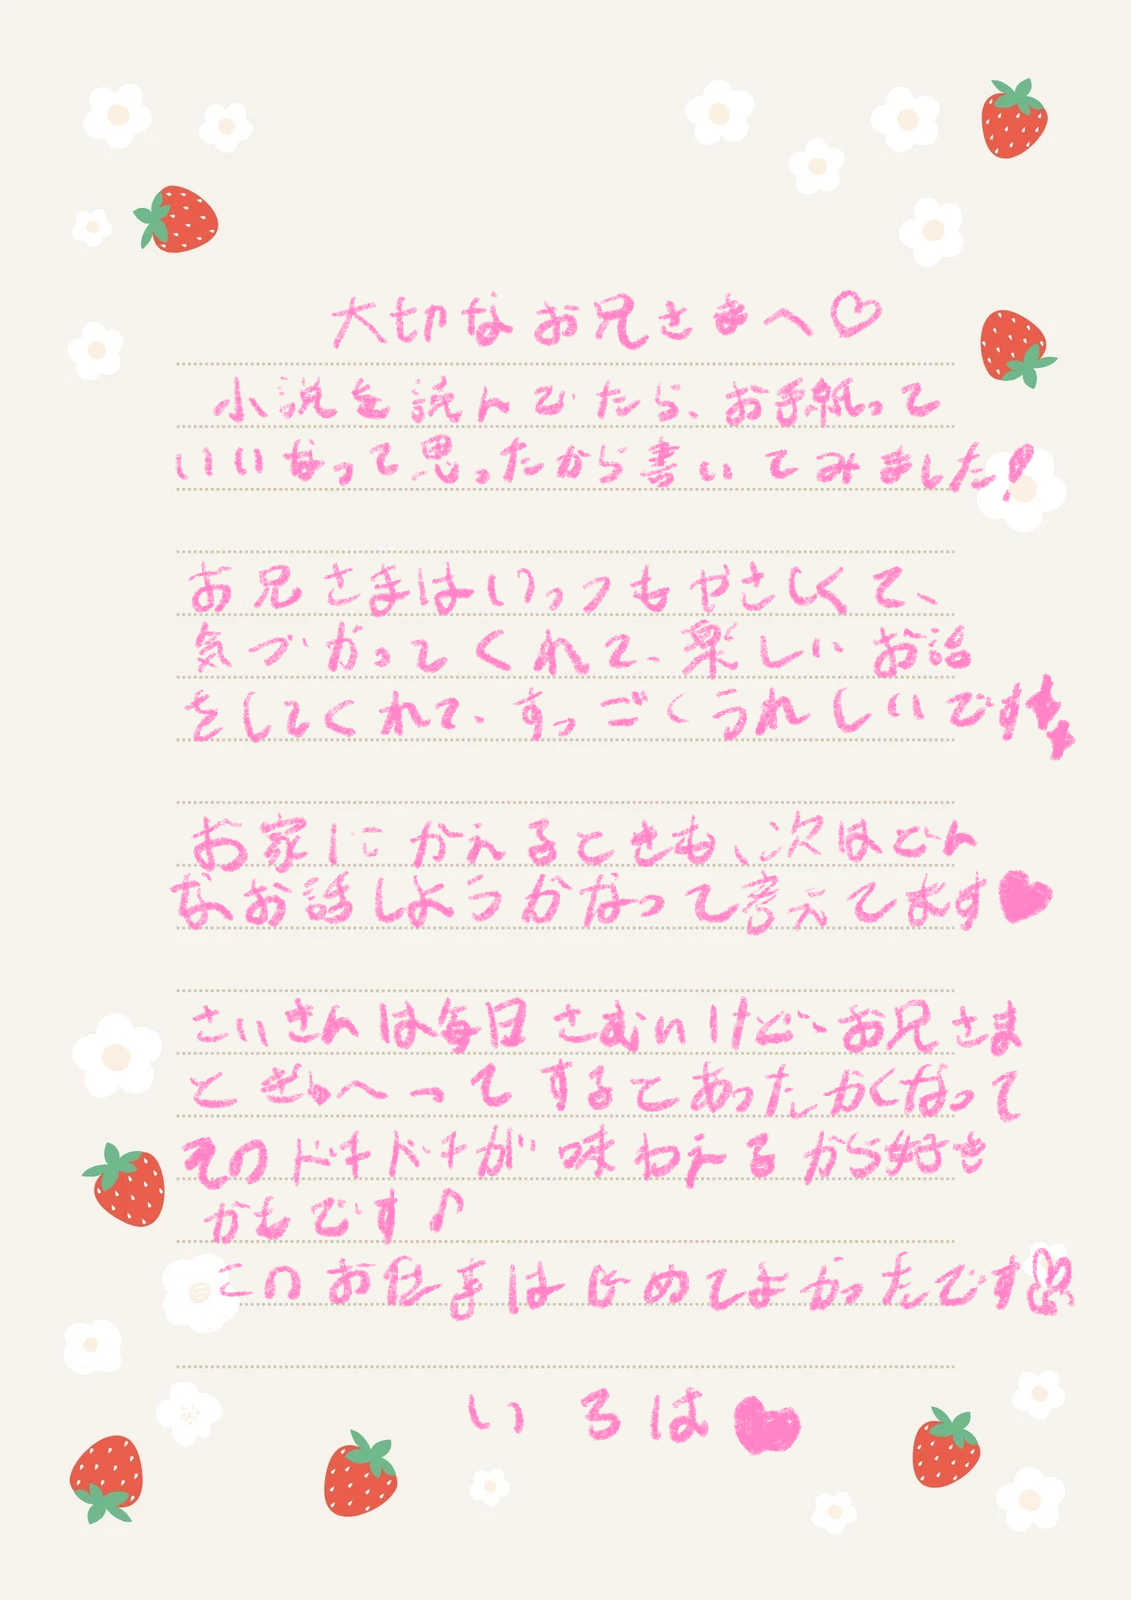 大切なお兄さまへ♡
小説を読んでたら、お手紙って
いいなって思ったから書いてみました!
お兄さまはいっつもやさしくて、
気づかってくれて、楽しいお話
をしてくれて、すっごくうれしいです
お家にかえるときも、次はどん
なお話しようかなって考えてます♥
さいきんは毎日さむいけど、お兄さま
とぎゅへーってするとあったかくなって
そのドキドキが味わえるから好き
かもです♪
このお仕事はじめてよかったです
いろは♥